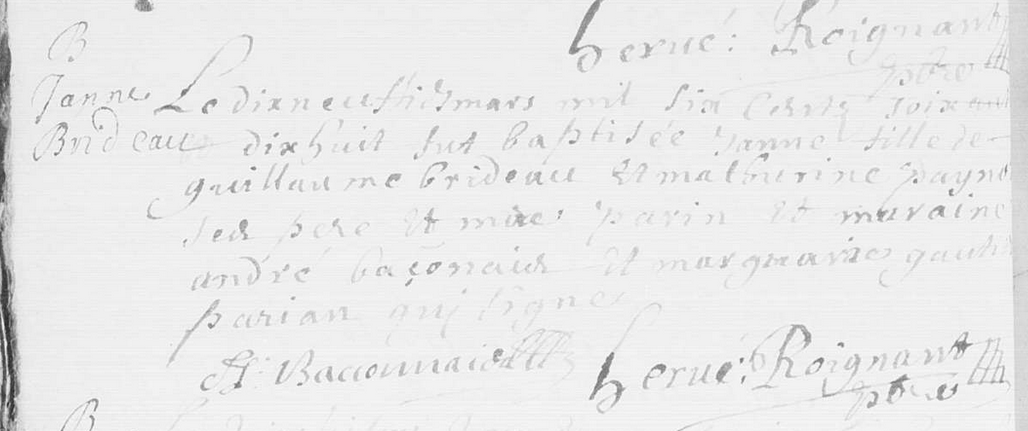 hervé: Roignant
pbre
B
Janne
Brideau
Le dixneufvi dsmars mil six Cents soixante
dixhuit fut baptisée Janne fille de
guillaume brideau Et mathurine payne
ses pere Et mere parin Et maraine
andré baçonais Et marguarite gautie
parian quj signe
A: Baconnais hervé: Roignant
pbre
B